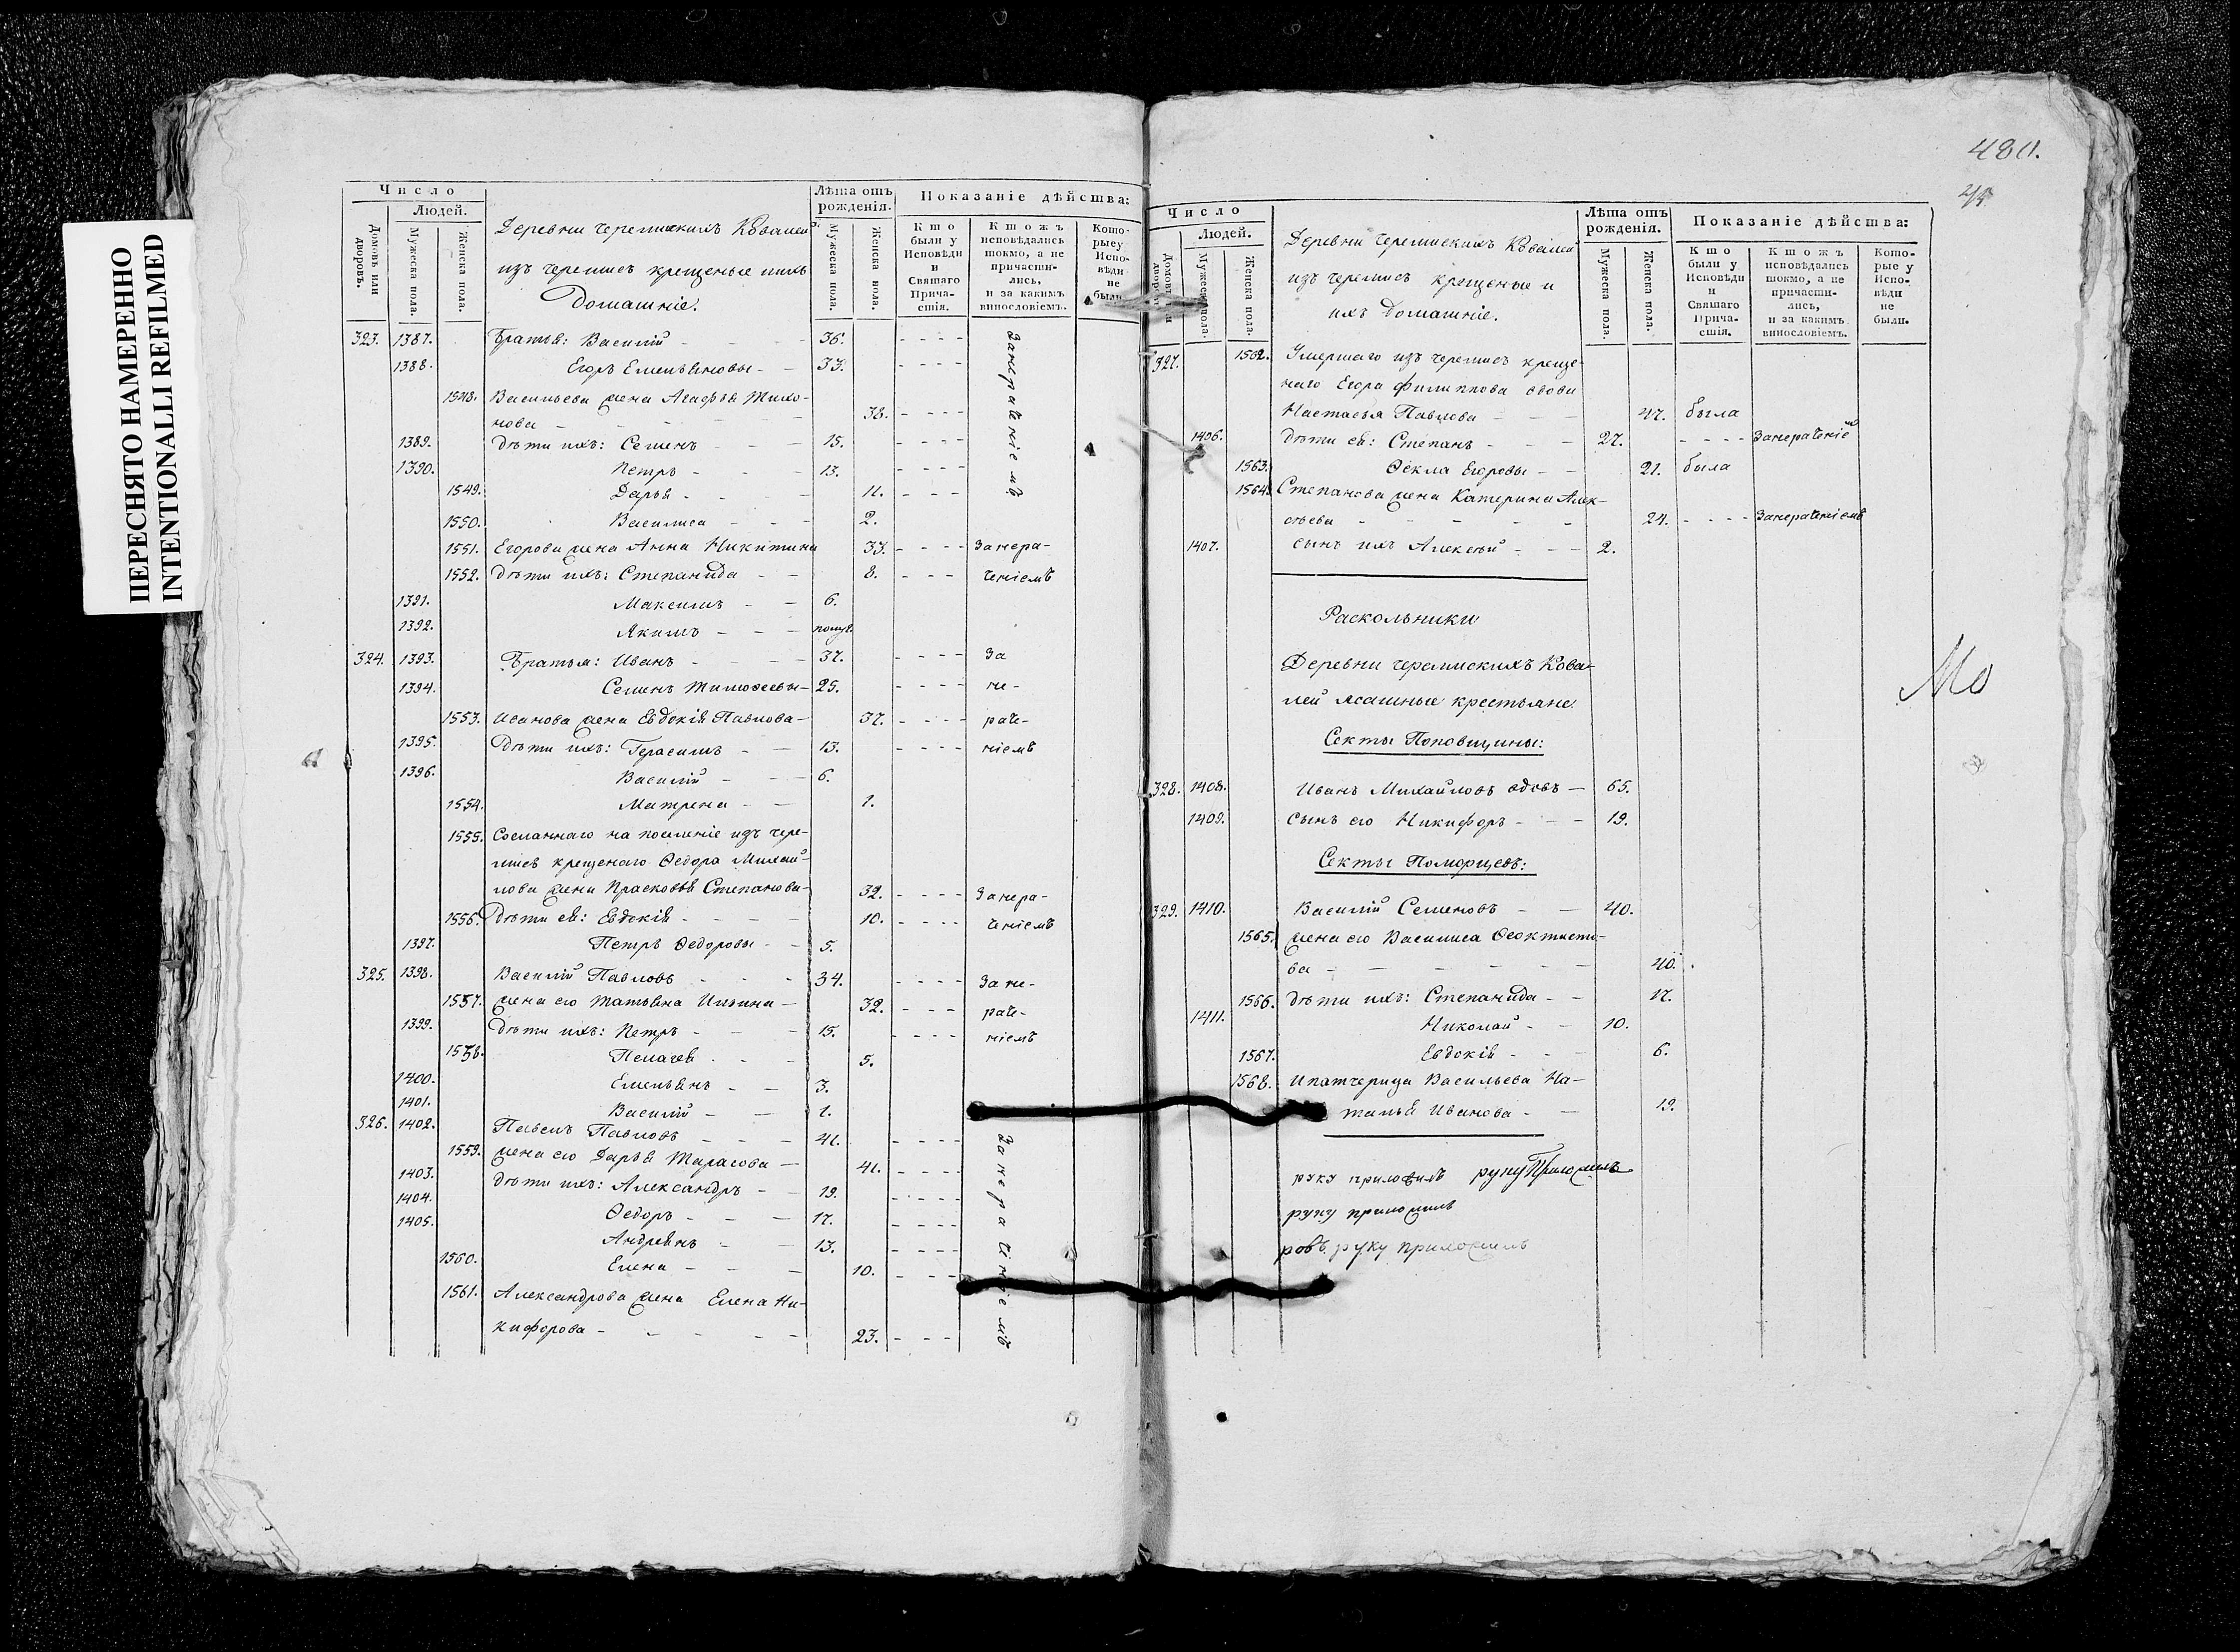 ПЕРЕСНЯТО НАМЕРЕННО
INTENTIONALLI REFILMED
Число
Людей.
Домовъ или дворовъ.
Мужеска пола.
Женска пола.
Деревни черемискихъ Ковалей
изъ черемисъ крещеные и ихъ
Домашніе.
Лѣта отъ рожденія.
Мужеска пола.
Женска пола.
Показаніе дѣйства:
Кто были у Исповѣди и Святаго Причастія.
Ктожъ исповѣдались токмо, а не причастились, и за какимъ винословіемъ.
Которые у Исповѣди не были.
323. 1387. Братья: Василій - - - 36. - - - - Занераченіемъ
1388. Егоръ Емельяновы - - 33. - - - -
1548. Васильева жена Агафья Тихо-
нова - - - - 38. - - - -
1389. Дѣти ихъ: Семенъ - - - 15. - - - -
1390. Петръ - - - 13. - - - -
1549. Дарья - - - 11. - - -
1550. Василиса - - - 2.
1551. Егорова жена Анна Никитина 33. - - - - Занера-
1552. Дѣти ихъ: Степанида - - 8. - - - ченіемъ
1391. Максимъ - - 6.
1392. Якимъ - - - полуг.
324. 1393. Братья: Иванъ - - - - 37. - - - - За
1394. Семенъ Тимофеевы - 25. - - - - не-
1553. Иванова жена Евдокія Павлова - 37. - - - - раче-
1395. Дѣти ихъ: Герасимъ - - 13. - - - - ніемъ
1396. Василій - - - 6.
1554. Матрена - - 1.
1555. Сосланнаго на поселеніе изъ чере-
мисъ крещенаго Ѳедора Михай-
лова жена Прасковья Степанова - 32. - - - - Занера-
1556. Дѣти ея: Евдокія - - - - 10. - - - - ченіемъ
1397. Петръ Ѳедоровы - - 5.
325. 1398. Василій Павловъ - - - 34. - - - - Зане-
1557. жена его Татьяна Ильина - 32. - - - раче-
1399. Дѣти ихъ: Петръ - - - 15. - - - - ніемъ
1558. Пелагея - - - 5.
1400. Емельянъ - - 3.
1401. Василій - - 1.
326. 1402. Павелъ Павловъ - - - 41. - - - - Занераченіемъ
1559. жена его Дарья Тарасова - 41. - - - -
1403. Дѣти ихъ: Александръ - - 19. - - - -
1404. Ѳедоръ - - - 17. - - - -
1405. Андреянъ - - 13. - - - -
1560. Елена - - - 10. - - - -
1561. Александрова жена Елена Ни-
кифорова - - - - - 23. - - - -
480.
Число
Людей.
Домовъ или дворовъ.
Мужеска пола.
Женска пола.
Деревни черемискихъ Ковалей
изъ черемисъ крещеные и
ихъ Домашніе.
Лѣта отъ рожденія.
Мужеска пола.
Женска пола.
Показаніе дѣйства:
Кто были у Исповѣди и Святаго Причастія.
Ктожъ исповѣдались токмо, а не причастились, и за какимъ винословіемъ.
Которые у Исповѣди не были.
327. 1562. Умершаго изъ черемисъ креще-
наго Егора Филиппова вдова
Настасья Павлова - - 47. была
1406. Дѣти ея: Степанъ - - - 27. - - - - Занераченіем
1563. Ѳекла Егоровы - - 21. была
1564. Степанова жена Катерина Алек-
сѣева - - - - - 24. - - - - Занераченіемъ
1407. сынъ ихъ Алексѣй - - - 2.
Раскольники
Деревни черемискихъ Кова-
лей ясашные крестьяне
Секты Поповщины:
328. 1408. Иванъ Михайловъ вдовъ - 65.
1409. Сынъ его Никифоръ - - - 19.
Секты Поморцевъ:
329. 1410. Василій Семеновъ - - 40.
1565. жена его Василиса Ѳеоктисто-
ва - - - - - - 40.
1566. Дѣти ихъ: Степанида - - 17.
1411. Николай - - 10.
1567. Евдокія - - - 6.
1568. И патчерица Васильева На-
талья Иванова - - 19.
руку приложилъ руку Приложилъ
руку приложилъ
ровъ руку приложилъ